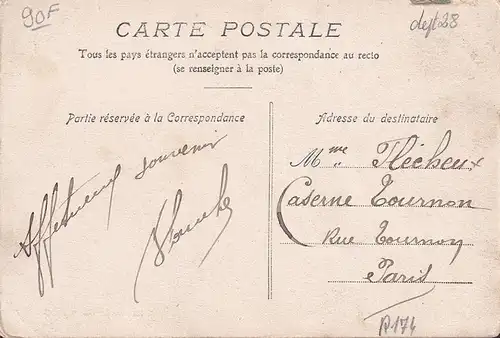 90F
dept 28
CARTE POSTALE
Tous les pays étrangers n'acceptent pas la correspondance au recto
(se renseigner à la poste)
Partie réservée à la Correspondance
Affectueux souvenir
Blanche
Adresse du destinataire
Mme Flécheux
Caserne Tournon
Rue Tournon
Paris
R174